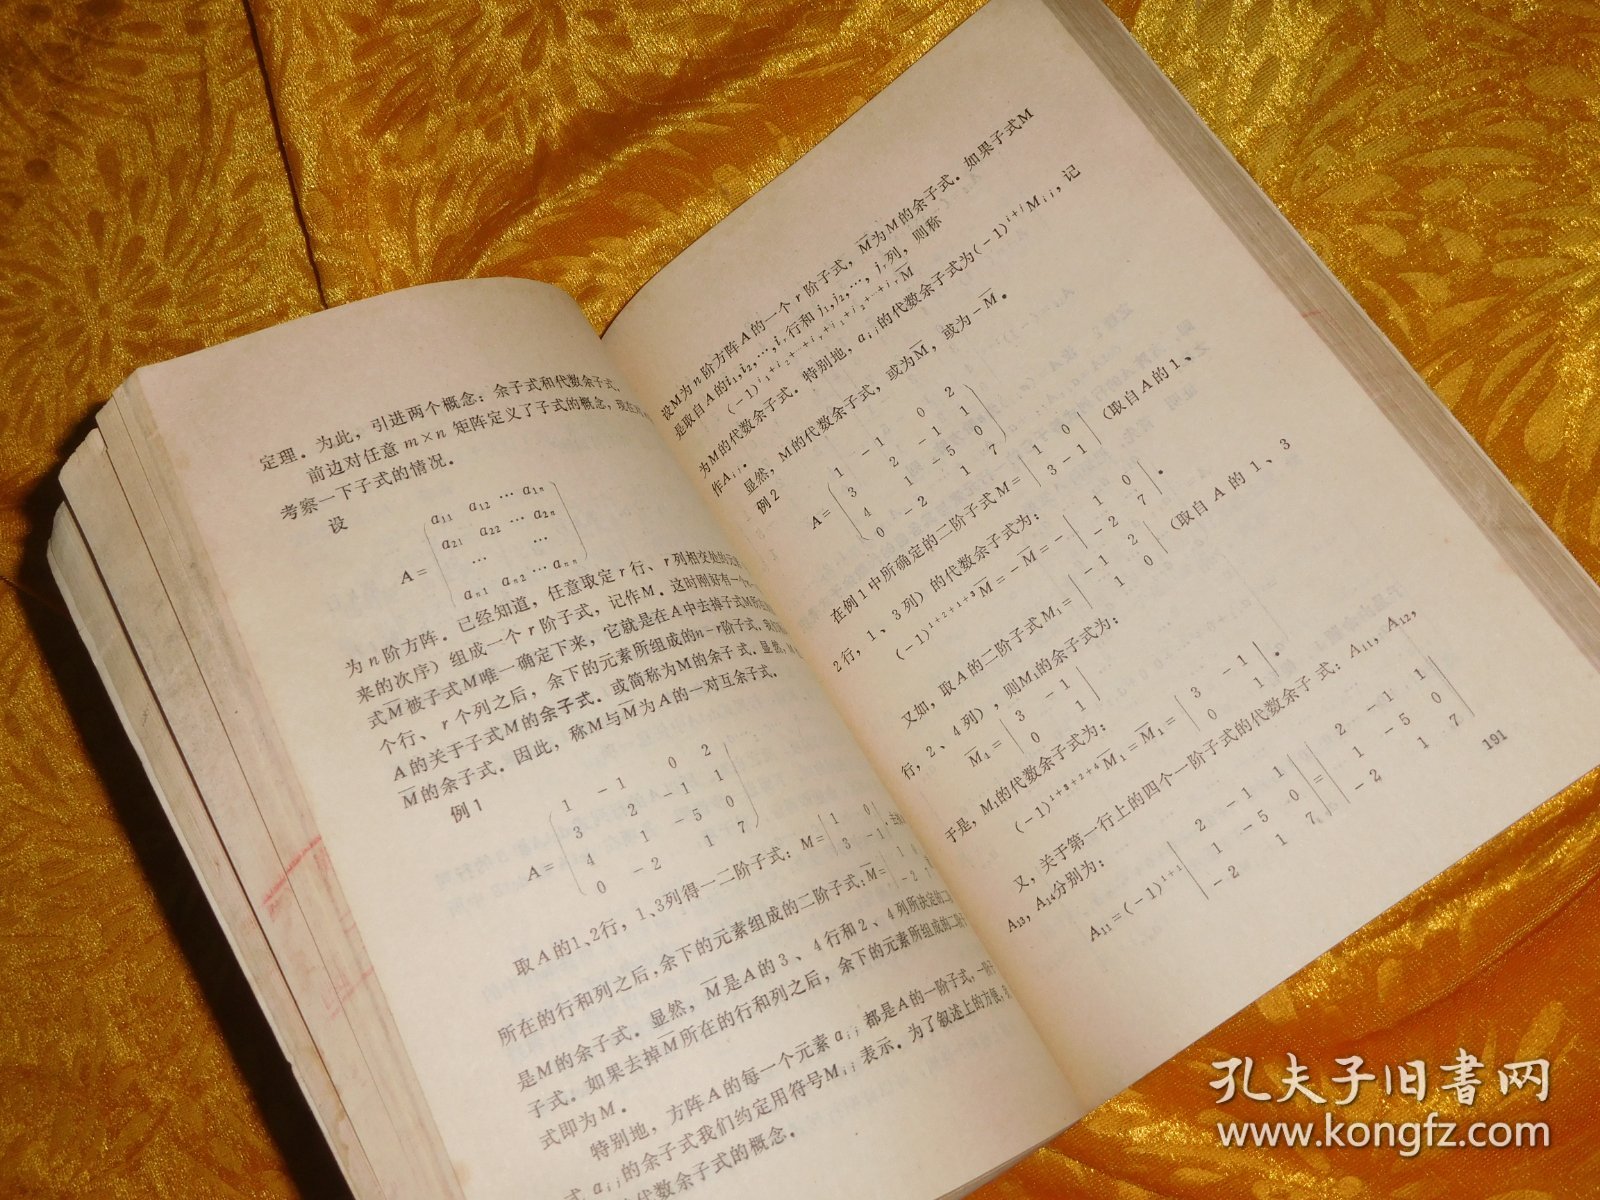 定理．为此，引进两个概念：余子式和代数余子式．
前边对任意 m×n 矩阵定义了子式的概念，现在
考察一下子式的情况．
设
a₁₁ a₁₂ … a₁ₙ
a₂₁ a₂₂ … a₂ₙ
… …
A=
aₙ₁ aₙ₂ … aₙₙ
为 n 阶方阵．已经知道，任意取定 r 行、r 列相交处的元
来的次序）组成一个 r 阶子式，记作M．这时刚好有一个
式M̅被子式M唯一确定下来，它就是在A中去掉子式M所在
个行、r 个列之后，余下的元素所组成的n－r阶子式．我们
A的关于子式M的余子式．或简称为M的余子式．显然，M
M̅的余子式．因此，称M与M̅为A的一对互余子式．
例1
1 －1 0 2
3 2 －1 1
A=
4 1 －5 0
0 －2 1 7
取A的1、2行，1、3列得一二阶子式：M=
1 0
3 －1
所在的行和列之后，余下的元素组成的二阶子式：M̅=
是M的余子式．显然，M̅是A的3、4行和2、4列所决定的二
子式．如果去掉M̅所在的行和列之后，余下的元素所组成的二阶
式即为M．
特别地，方阵A的每一个元素 aᵢⱼ 都是A的一阶子式，一阶子
式 aᵢⱼ 的余子式我们约定用符号Mᵢⱼ 表示．为了叙述上的方便，
代数余子式的概念．
设M为n阶方阵A的一个 r 阶子式，M̅为M的余子式．如果子式M
是取自A的i₁,i₂,…,iᵣ行和 j₁,j₂,…,jᵣ列，则称
(－1)^(i₁+i₂+…+iᵣ+j₁+j₂+…+jᵣ) M̅
为M的代数余子式．特别地，aᵢⱼ的代数余子式为(－1)ⁱ⁺ʲMᵢⱼ，记
作Aᵢⱼ．
显然，M的代数余子式，或为M̅，或为－M̅．
例2
1 －1 0 2
3 2 －1 1
A=
4 1 －5 0
0 －2 1 7
在例1中所确定的二阶子式M=
1 0
3 －1
（取自A的1、
2行，1、3列）的代数余子式为：
(－1)¹⁺²⁺¹⁺³M̅=－M̅=－
1 0
－2 7
．
又如，取A的二阶子式M₁=
－1 2
1 0
（取自A的1、3
行，2、4列），则M₁的余子式为：
M̅₁=
3 －1
0 1
于是，M₁的代数余子式为：
(－1)¹⁺³⁺²⁺⁴M̅₁=M̅₁=
3 －1
0 1
．
又，关于第一行上的四个一阶子式的代数余子式：A₁₁，A₁₂，
A₁₃，A₁₄分别为：
A₁₁=(－1)¹⁺¹
2 －1 1
1 －5 0
－2 1 7
=
2 －1 1
1 －5 0
－2 1 7
191
孔夫子旧書网
www.kongfz.com